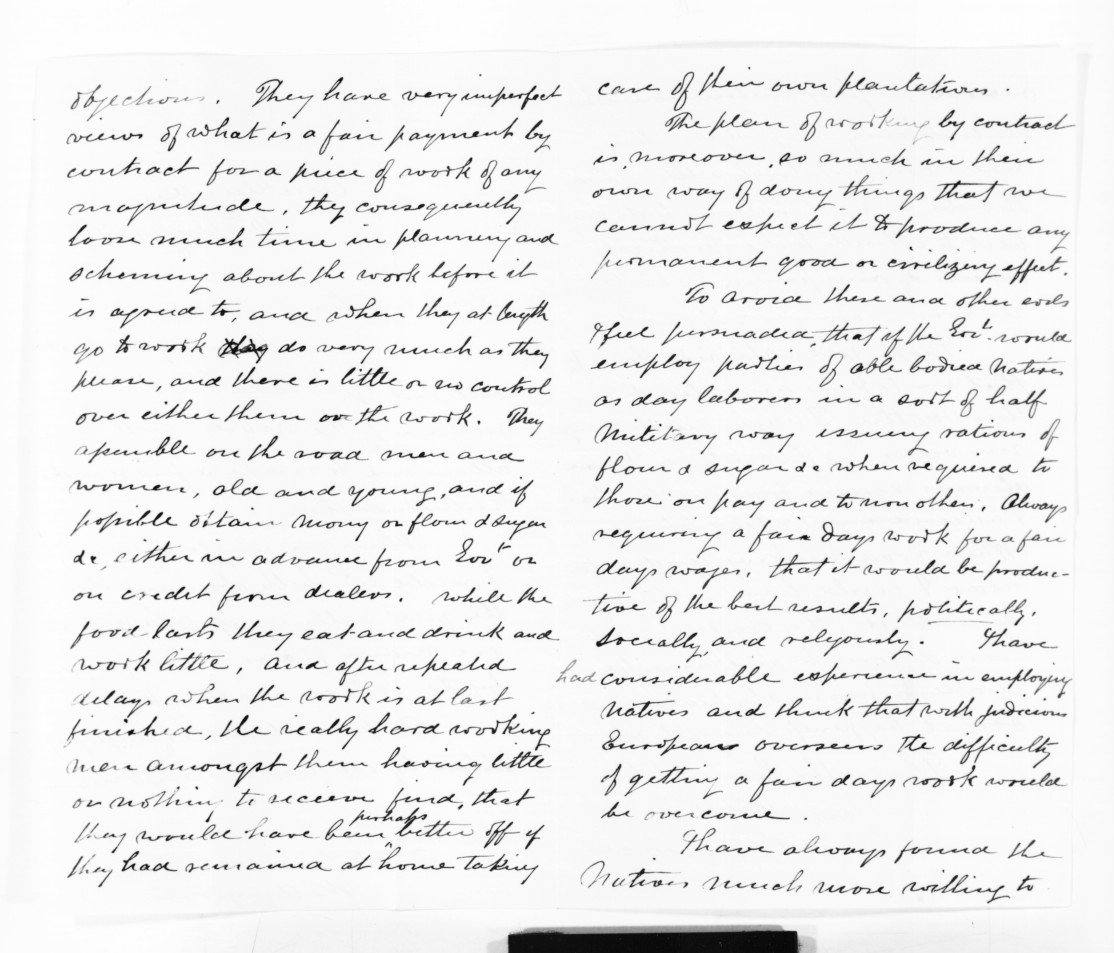 objections. They have very imperfect
views of what is a fair payment by
contract for a piece of work of any
magnitude, they consequently
loose much time in planning and
scheming about the work before it
is agreed to, and when they at length
go to work they do very much as they
please, and there is little or no control
over either them or the work. They
assemble on the road men and
women, old and young, and if
possible obtain money or flour & sugar
&c, either in advance from Govt or
on credit from dealers. While the
food lasts they eat and drink and
work little, and after repeated
delays when the work is at last
finished, the really hard working
men amongst them having little
or nothing to receive find, that
they would have been perhaps better off if
they had remained at home taking
care of their own plantations.
The plan of working by contract
is, moreover, so much in their
own way of doing things that we
cannot expect it to produce any
permanent good or civilizing effect.
To avoid these and other evils
I feel persuaded, that if the Govt. would
employ parties of able bodied Natives
as day laborers in a sort of half
Military way issuing rations of
flour & sugar &c when required to
those on pay and to non others. Always
requiring a fair days work for a fair
days wages, that it would be produc-
tive of the best results, politically,
socially, and religously. I have
had considerable experience in employing
Natives and think that with judicious
European overseers the difficulty
of getting a fair days work would
be overcome.
I have always found the
Natives much more willing to